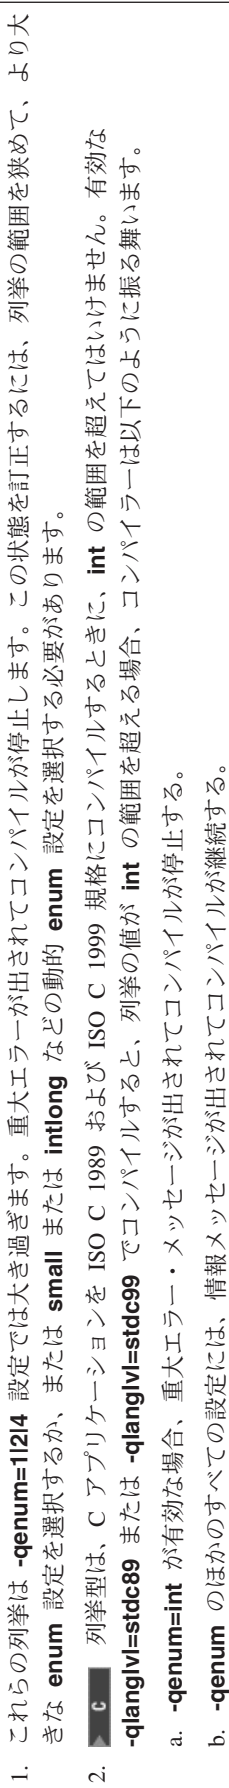 1. これらの列挙は -qenum=1|2|4 設定では大き過ぎます。重大エラーが出されてコンパイルが停止します。この状態を訂正するには、列挙の範囲を狭めて、より大
きな enum 設定を選択するか、または small または intlong などの動的 enum 設定を選択する必要があります。
2. C 列挙型は、C アプリケーションを ISO C 1989 および ISO C 1999 規格にコンパイルするときに、int の範囲を超えてはいけません。有効な
-qlanglvl=stdc89 または -qlanglvl=stdc99 でコンパイルすると、列挙の値が int の範囲を超える場合、コンパイラーは以下のように振る舞います。
a. -qenum=int が有効な場合、重大エラー・メッセージが出されてコンパイルが停止する。
b. -qenum のほかのすべての設定には、情報メッセージが出されてコンパイルが継続する。